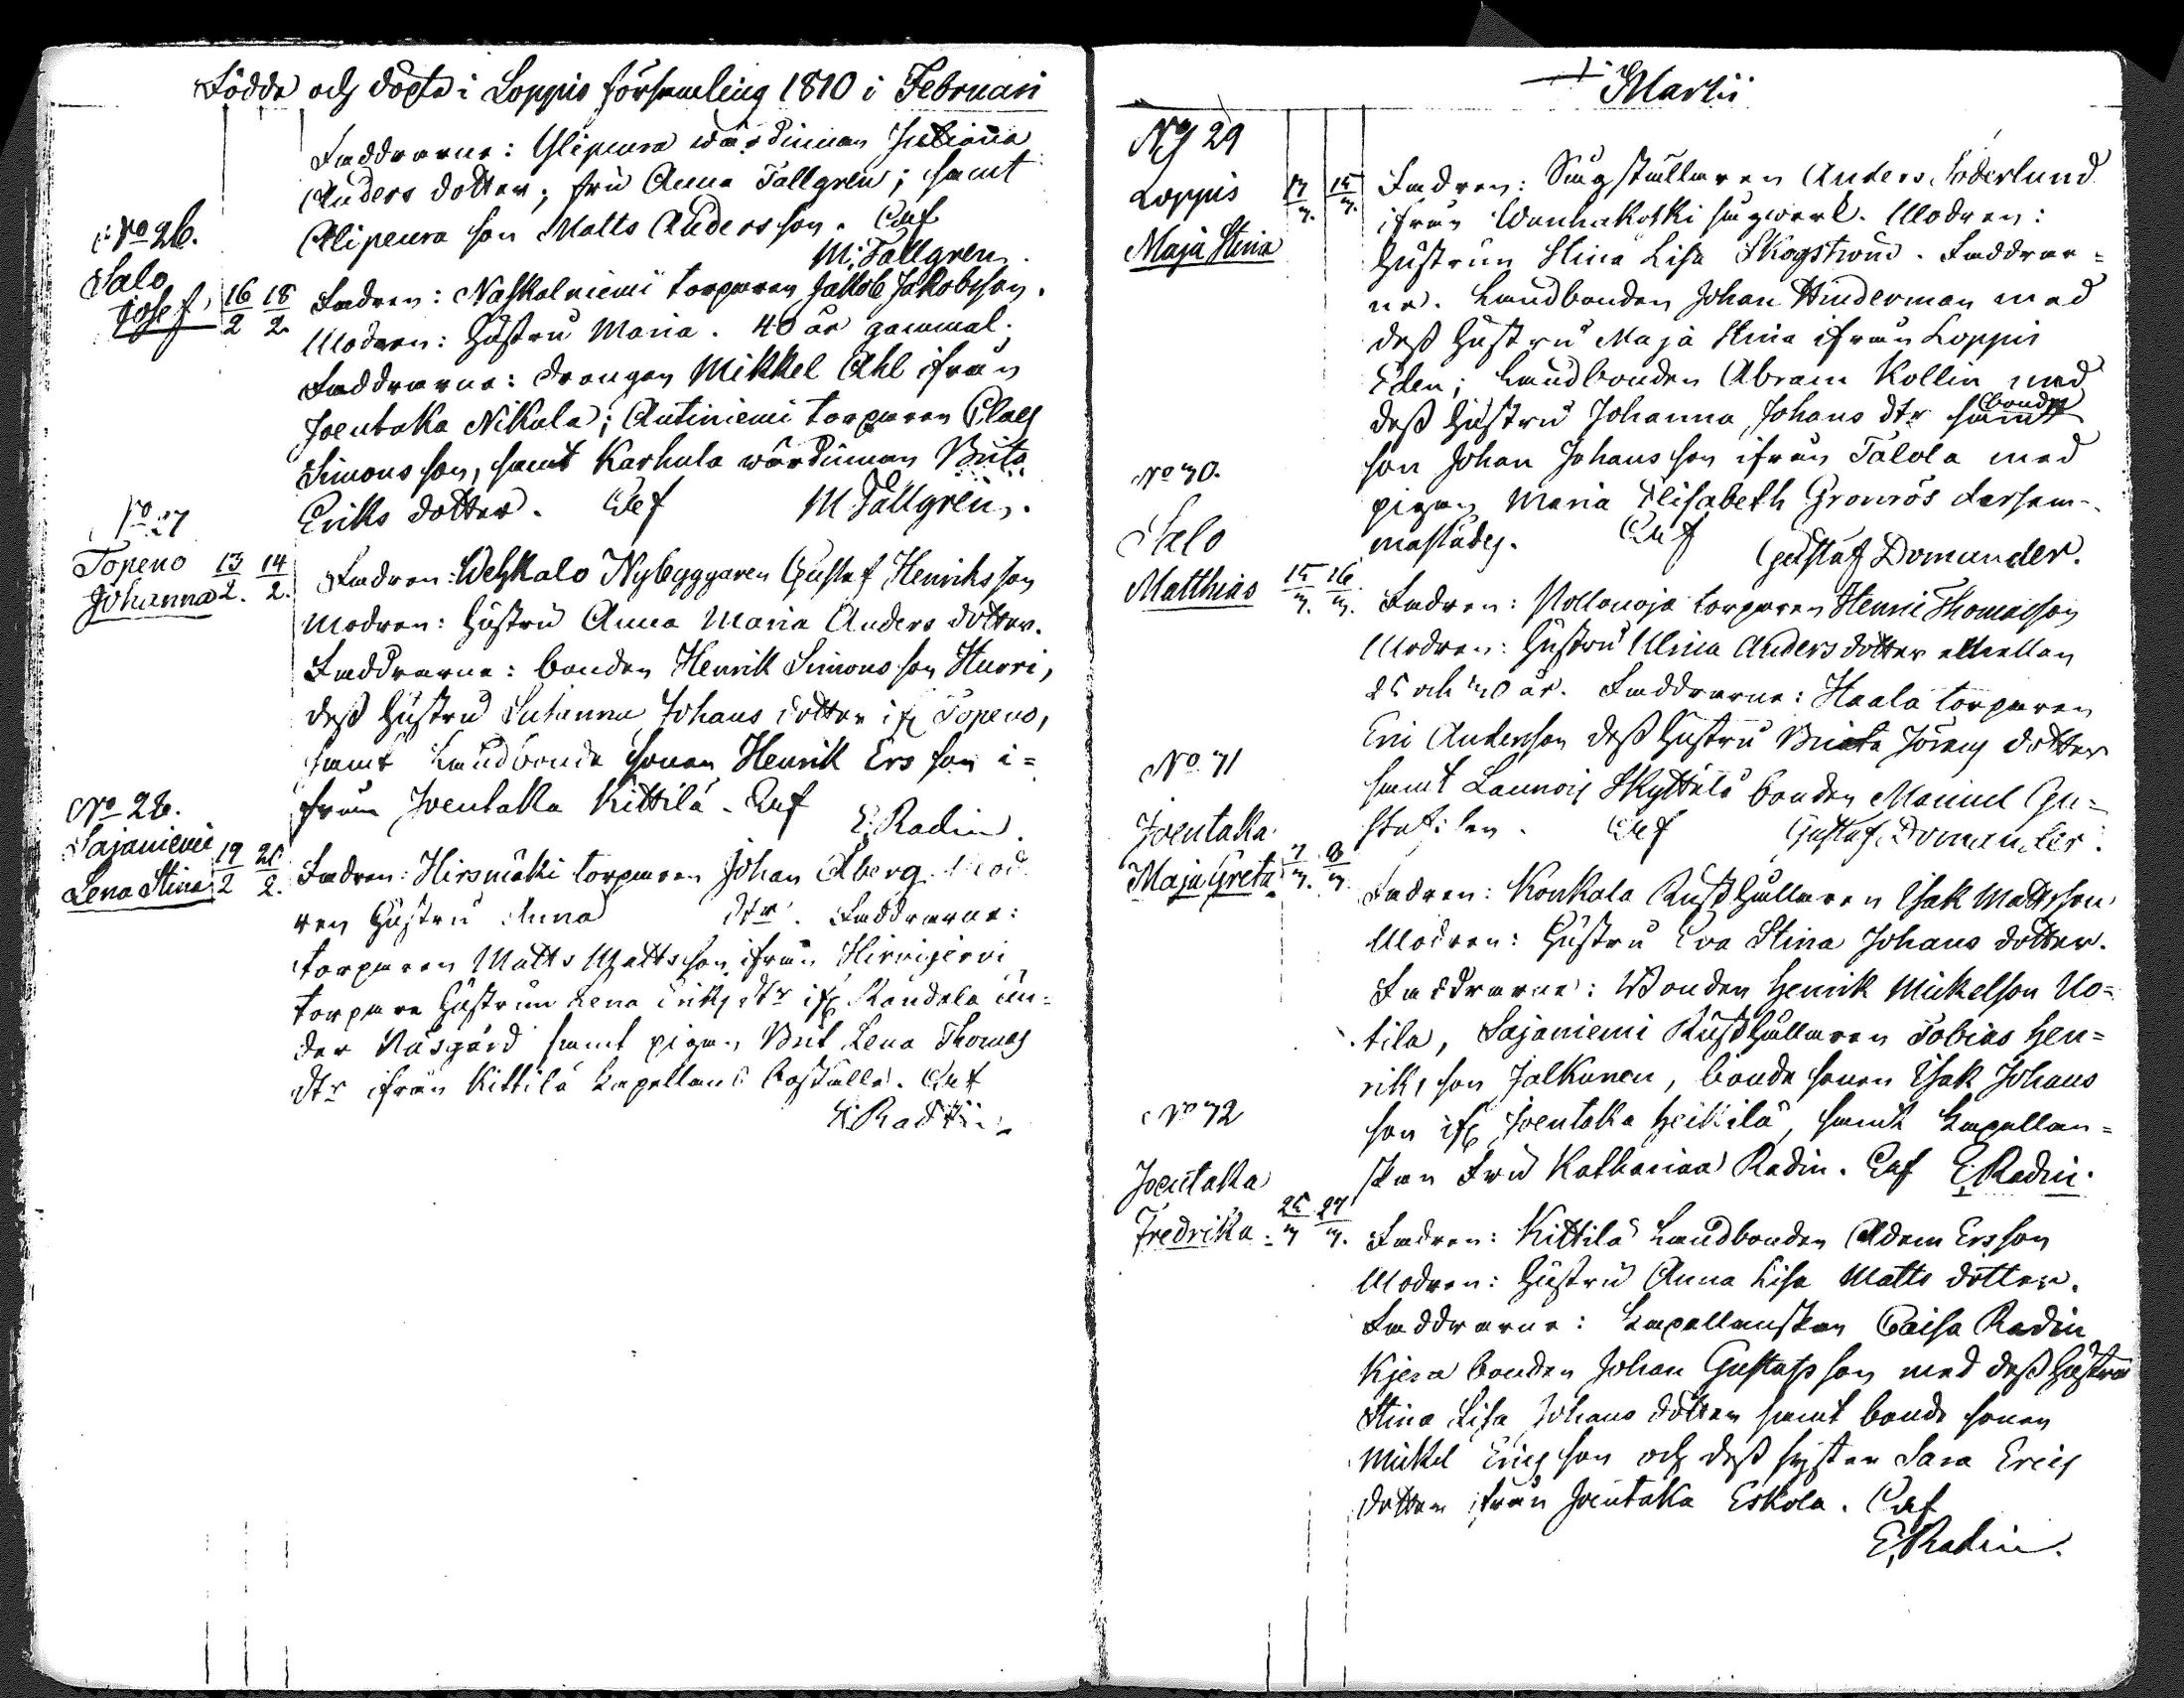 Födde och döpte i Loppis församling 1810 i Februari
Faddrarne: Ylipeura wärdinnan Juliana
Anders dotter; fru Anna Tallgren; samt
Alipeura son Matts Andersson. Cuf
M. Tallgren.
No 26.
Salo
Josef 16/2 18/2.
Fadren: Naskalniemi torparen Jakob Jakobsson.
Modren: Hustru Maria. 40 år gammal.
Faddrarne: drangen Mikkel Ahl ifrån
Joentaka Nikula; Antiniemi torparen Claes
Simonsson, samt Karhula wärdinnan Brita
Eriks dotter. Cuf M Tallgren.
No 27
Topeno 13/2. 14/2.
Johanna
Fadren: Wehkalo Nybyggaren Gustaf Henriksson
Modren: Hustru Anna Maria Anders dotter.
Faddrarne: bonden Henrik Simonsson Hurri,
dess Hustru Susanna Johans dotter ifr Topeno,
samt Landbonde sonen Henrik Ersson i=
från Joentakka Kittilä. Cuf
E. Radin.
No 28.
Sajaniemi
Lena Stina 19/2 25/2.
Fadren: Hirsmäki torparen Johan Åberg. Mod
ren Hustru Anna dtr. Faddrarne:
torparen Matts Mattsson ifrån Hirvijervi
torpare Hustrun Lena Eriks dtr ifr Kandala un=
der Näsgård samt pigan Brit Lena Thomas
dtr ifrån Kittilä Capellans Boställe. Cuf
E. Radin.
Martii
No 29
Loppis 13/3. 15/3.
Maja Stina
Fadren: Sågställaren Anders Söderlund
ifrån Wanhakoski sågwerk. Modren:
Hustrun Stina Lisa Skogström. Faddrar=
ne. Landbonden Johan Hinderman med
dess Hustru Maja Stina ifrån Loppis
; Landbonden Abram Kollin med
dess Hustru Johanna Johans dtr samt bonde
son Johan Johansson ifrån Talola med
pigan Maria Elisabeth Gronrös dersam-
mastädes. Cuf Gustaf Domander.
No 30.
Salo
Matthias 15/3. 16/3.
Fadren: torparen Henric Thomasson
Modren: Hustru Ulrica Anders dotter emellan
25 och 30 år. Faddrarne: Haala torparen
Eric Andersson dess Hustru Briata Jörans dotter
samt Launois Skyttälä bonden Manuel Gu=
. Cuf Gustaf Domander.
No 31
Joentaka
Maja Greta 7/3. 8/3
Fadren: Konkala Rusthållaren Isak Mattsson
Modren: Hustru Eva Stina Johans dotter.
Faddrarne: Bonden Henrik Mickelson Uo=
tila, Sajaniemi Rusthållaren Tobias Hen=
riks son Jalkanen, bonde sonen Isak Johans
son ifr Joentaka Heikilä, samt Capellan=
skan Fru Katharina Radin. Cuf E. Radin.
No 32
Joentaka
Fredrika. 25/3 27/3.
Fadren: Kittilä Landbonden Adam Ersson
Modren: Hustru Anna Lisa Matts dotter.
Faddrarne: Capellanskan Caisa Radin
Kjera bonden Johan Gustafsson med dess Hustru
Stina Lisa Johans dotter samt bonde sonen
Mickel Ericsson och dess syster Sara Erics
dotter ifrån Joentaka Eskola. Cuf
E. Radin.